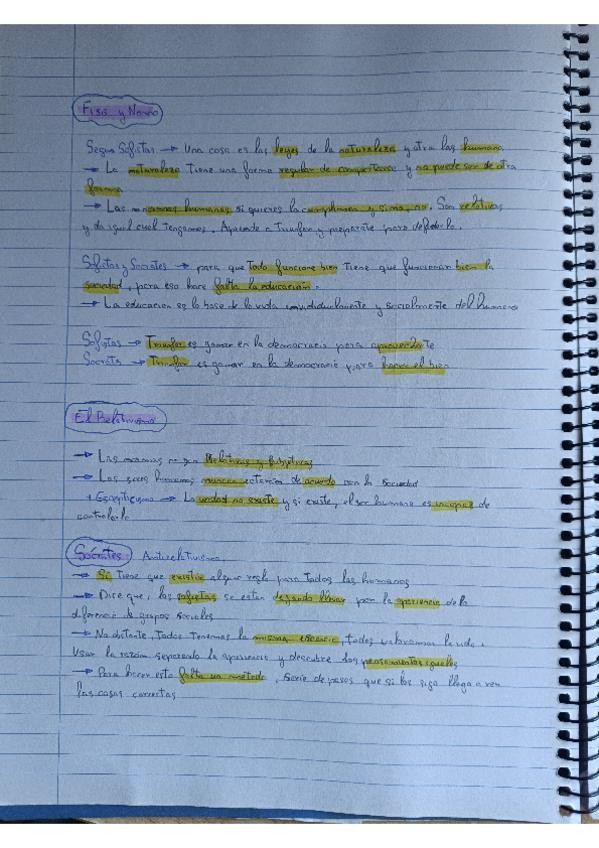 Fisis y Nomo
Segun Sofistas → Una cosa es las leyes de la naturaleza y otra las humanas
→ La naturaleza tiene una forma regular de comportarse y no puede ser de otra
forma
→ Las humanas si quieres la cumplimos y si no, no. Son relativas
y da igual cual tengamos. Aprende a triunfar y preparate para defenderlo.
Sofistas y Socrates → para que todo funcione bien tiene que funcionar bien la
sociedad, para eso hace falta la educación.
→ La educacion es la base de la vida individualmente y socialmente del humano
Sofistas → Triunfar es ganar en la democracia para aprovecharte
Socrates → Triunfar es ganar en la democracia para hacer el bien
El Relativismo
→ Las normas no son Relativas y Subjetivas
→ Los seres humanos nunca estarian de acuerdo con la sociedad
+ Escepticismo → La verdad no existe y si existe, el ser humano es incapaz de
controlarla
Sócrates: Antirelativismo
→ Si tiene que existir algun regla para todos los humanos
→ Dice que, los sofistas se estan dejando llevar por la apariencia de la
diferencia de grupos sociales
→ No obstante, todos tenemos la misma esencia, todos valoramos la vida.
Usar la razón separando la apariencia y descubre los igueles
→ Para hacer esto falta un método, serie de pasos que si los sigo llego a ver
las cosas correctas